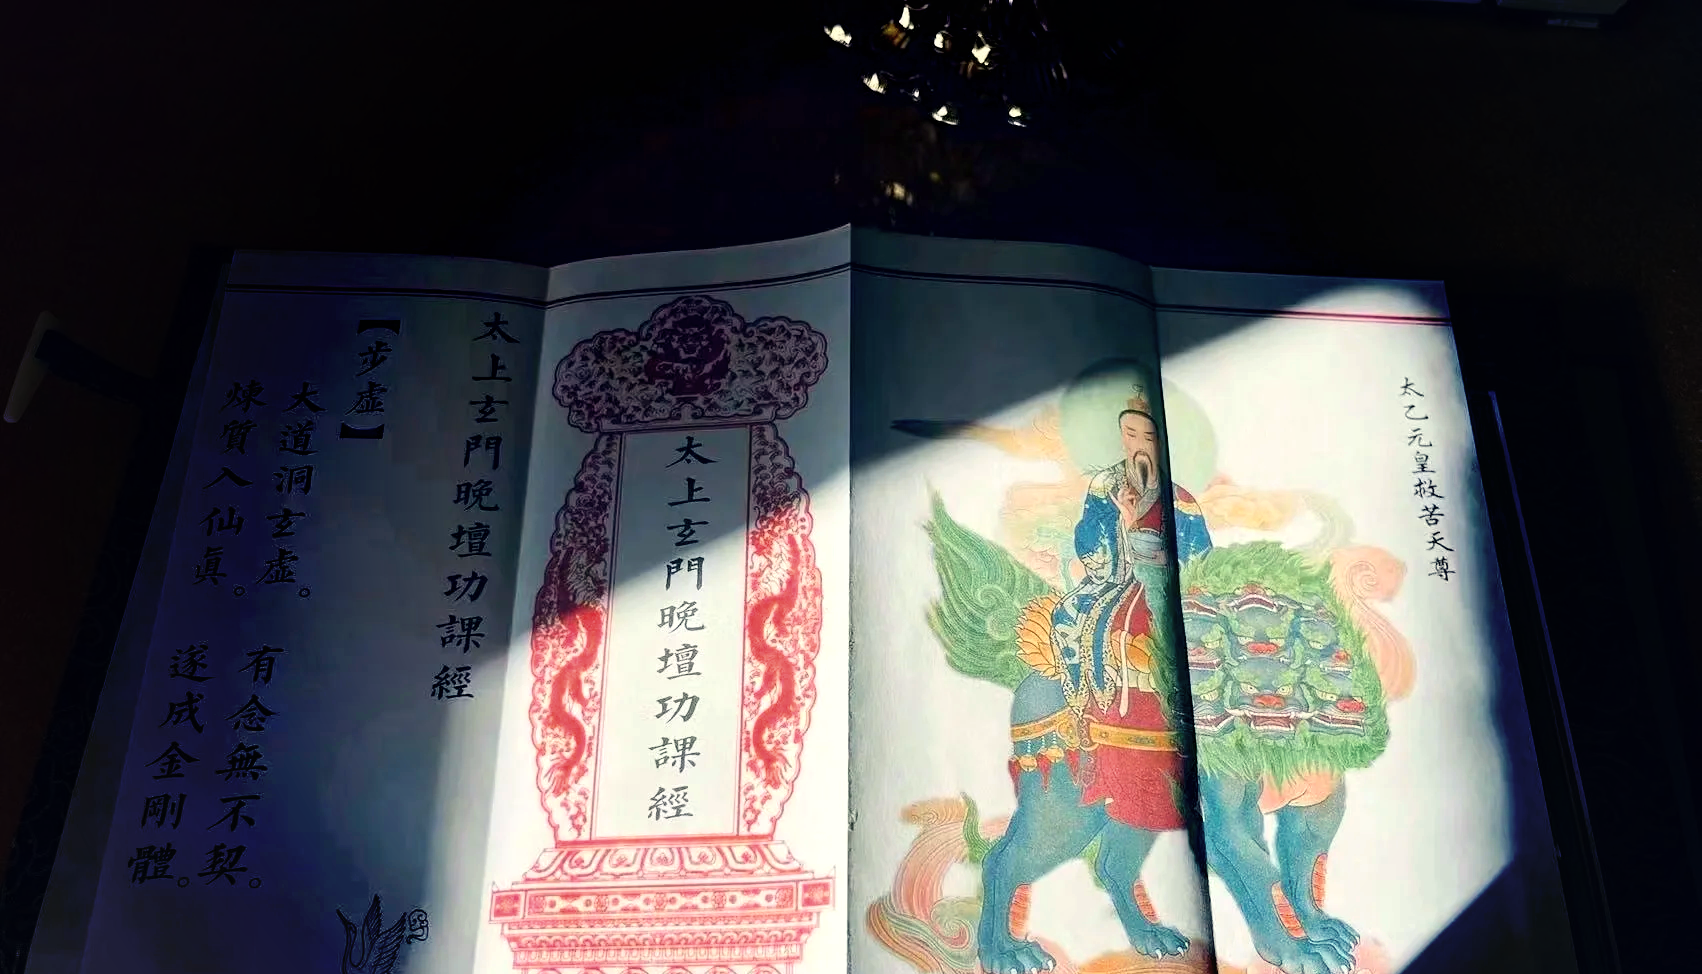 太乙元皇救苦天尊
太上玄門晚壇功課經
太上玄門晚壇功課經
【步虛】
大道洞玄虛。有念無不契。
煉質入仙眞。遂成金剛體。